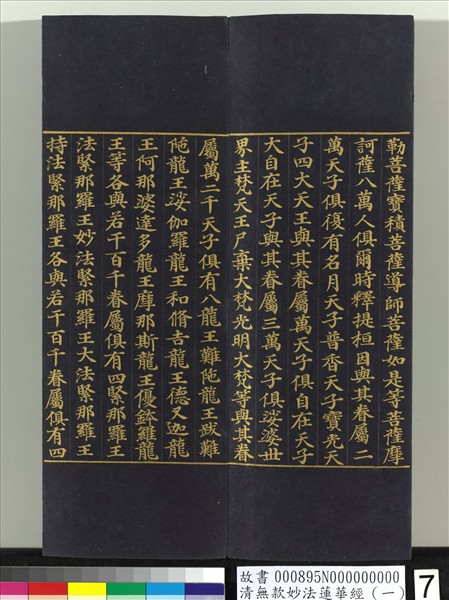 勒菩薩寶積菩薩導師菩薩如是等菩薩摩
訶薩八萬人俱爾時釋提桓因與其眷屬二
萬天子俱復有名月天子普香天子寶光天
子四大天王與其眷屬萬天子俱自在天子
大自在天子與其眷屬三萬天子俱娑婆世
界主梵天王尸棄大梵光明大梵等與其眷
屬萬二千天子俱有八龍王難陁龍王跋難
陁龍王娑伽羅龍王和脩吉龍王德叉迦龍
王阿那婆達多龍王摩那斯龍王優鉢羅龍
王等各與若干百千眷屬俱有四緊那羅王
法緊那羅王妙法緊那羅王大法緊那羅王
持法緊那羅王各與若干百千眷屬俱有四
故書 000895N000000000
清無款妙法蓮華經（一）
7